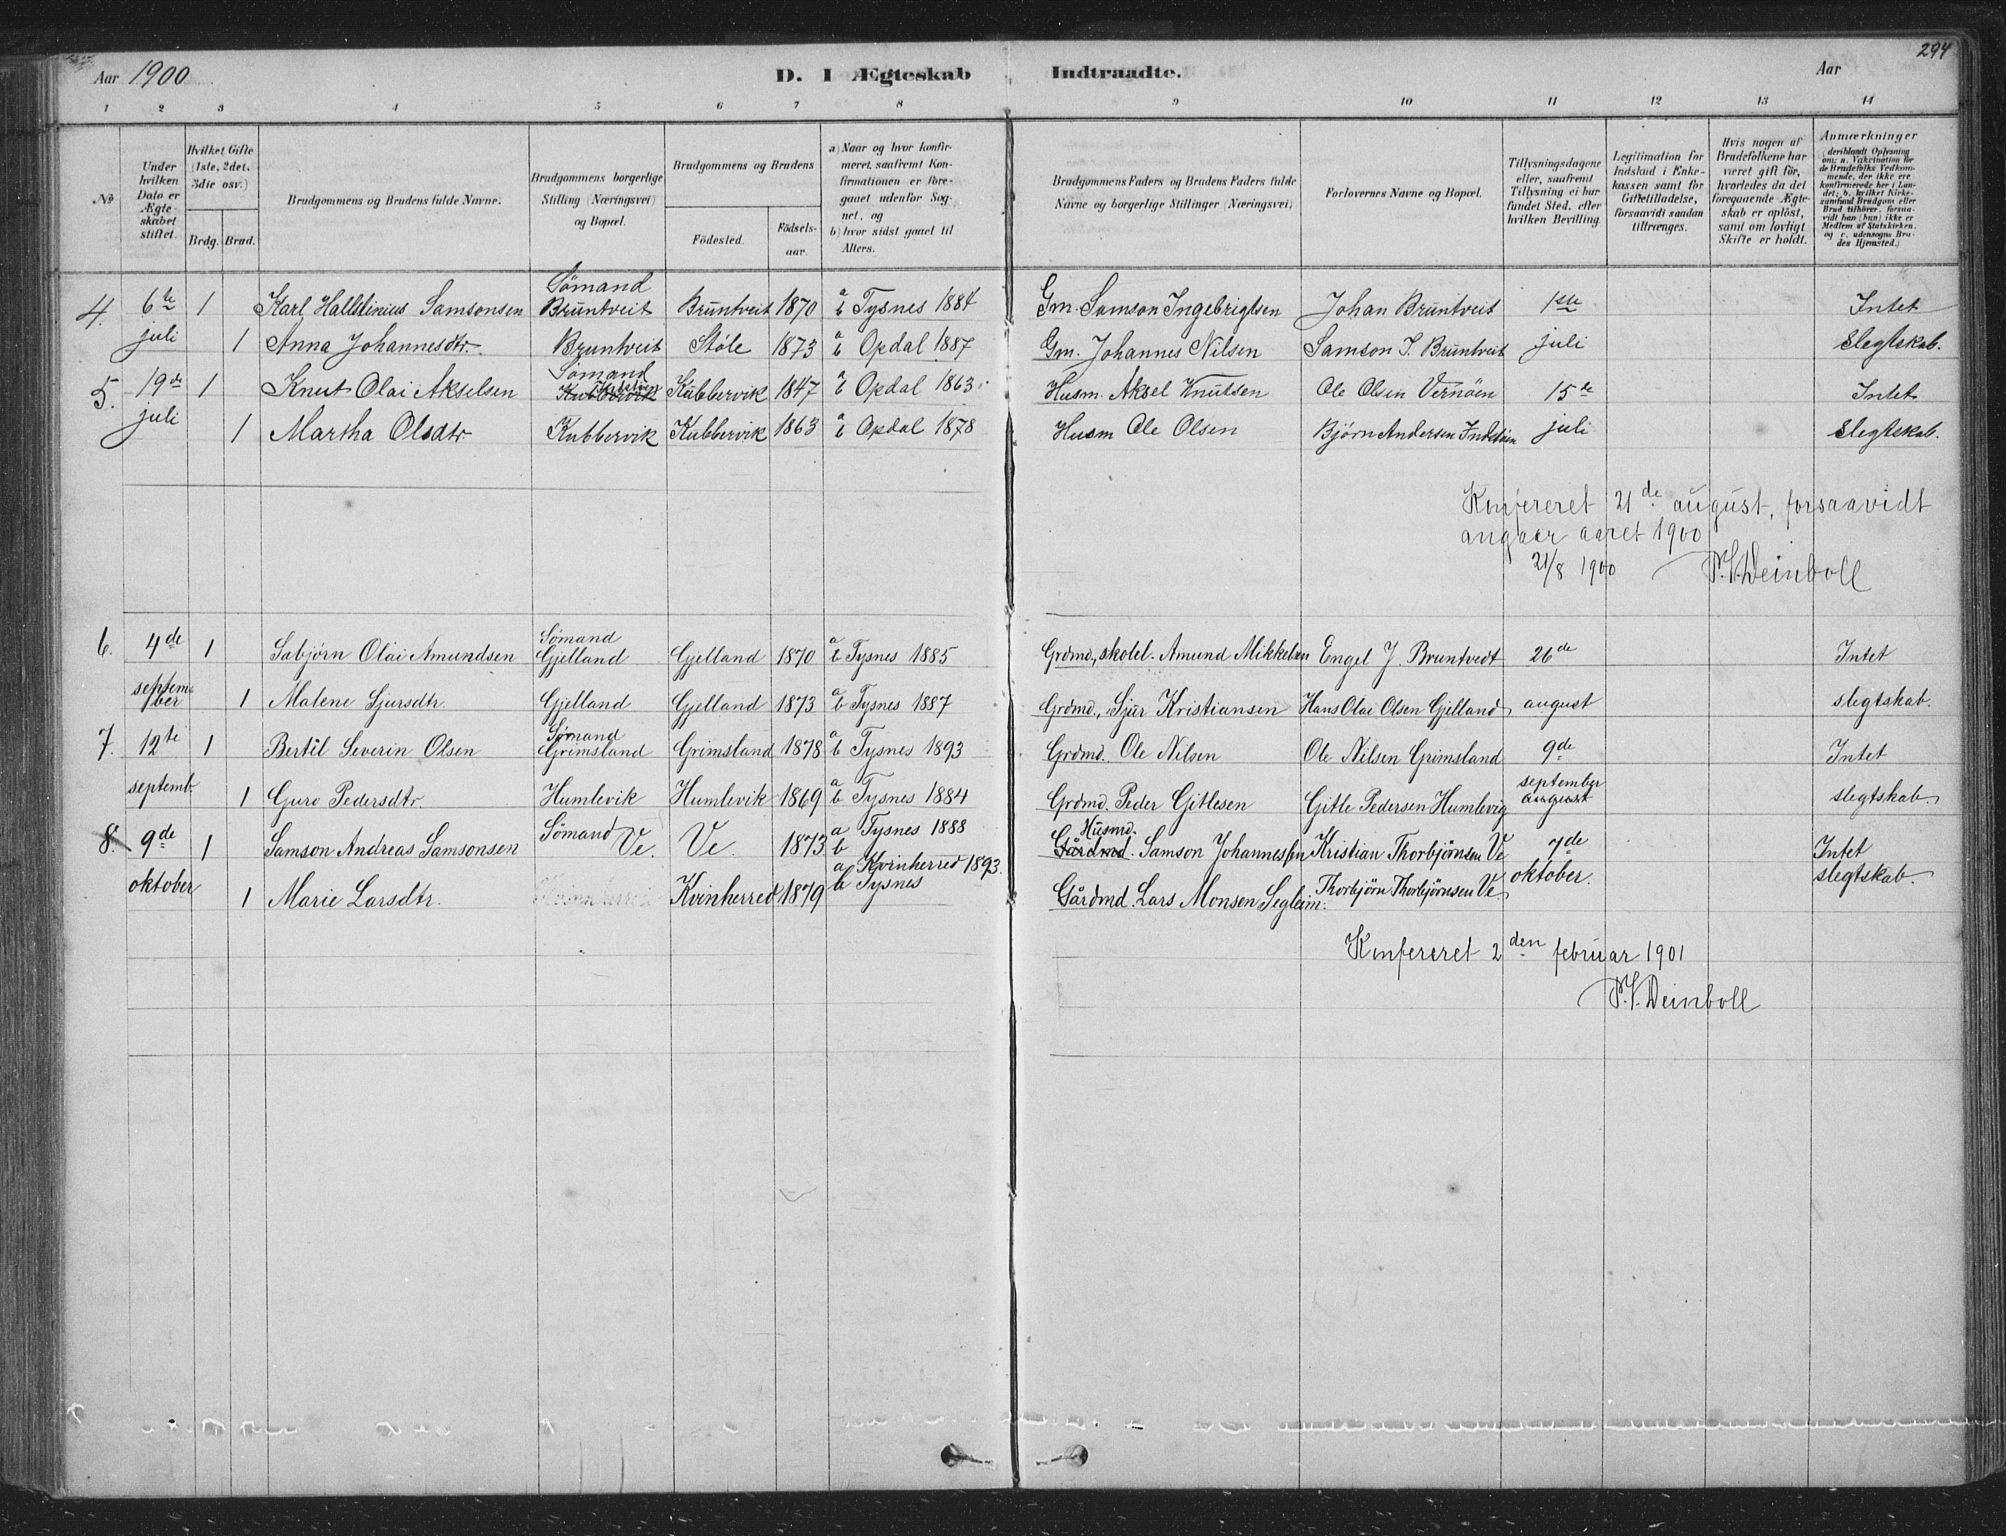 294
Aar 1900 D. I Ægteskab Indtraadte. Aar
1 2 3 4 5 6 7 8 9 10 11 12 13 14
No
Under hvilken Dato er Ægteskabet stiftet.
Hvilket Gifte (1ste, 2det, 3die osv.)
Brdg. Brud.
Brudgommens og Brudens fulde Navne.
Brudgommens borgerlige Stilling (Næringsvei) og Bopæl.
Brudgommens og Brudens
Födested. Födselsaar.
a) Naar og hvor konfirmeret, saafremt Konfirmationen er foregaaet udenfor Sognet, og
b) hvor sidst gaaet til Alters.
Brudgommens Faders og Brudens Faders fulde Navne og borgerlige Stillinger (Næringsvei)
Forlovernes Navne og Bopæl.
Tillysningsdagene eller, saafremt Tillysning ei har fundet Sted, efter hvilken Bevilling.
Legitimation for Indskud i Enkekassen samt for Giftetilladelse, forsaavidt saadan tiltrænges.
Hvis nogen af Brudefolkene har været gift før, hvorledes da det foregaaende Ægteskab er oplöst, samt om lovligt Skifte er holdt.
Anmærkninger (deriblandt Oplysning om: a. Vakcination for de Brudefolks Vedkommende, der ikke ere konfirmerede her i Landet; b. hvilket Kirkesamfund Brudgom eller Brud tilhörer, forsaavidt han (hun) ikke er Medlem af Statskirken, og c. udensogns Brudes Hjemsted.)
4. 6te 1 Karl Hallstinius Samsonsen Sømand Bruntveit Bruntveit 1870 a b Tysnes 1884 Gm. Samson Ingebrigtsen Johan Bruntveit 1ste Intet
juli 1 Anna Johannesdtr. Bruntveit Støle 1873 a b Opdal 1887 Gm. Johannes Nilsen Samson I. Bruntveit juli slegtskab.
5. 19de 1 Knut Olai Akselsen Sømand Kubbervik Kubbervik 1847 a b Opdal 1863 Husm. Aksel Knutsen Ole Olsen Vernøen 15de Intet
juli 1 Martha Olsdtr. Kubbervik Kubbervik 1863 a b Opdal 1878 Husm Ole Olsen Bjørn Andersen juli slegtskab.
Konfereret 21de august, forsaavidt
angaar aaret 1900
21/8 1900 P.V. Deinboll
6. 4de 1 Sabjørn Olai Amundsen Sømand Gjelland Gjelland 1870 a b Tysnes 1885 Grdmd, skolel. Amund Mikkelsen Engel J Bruntvedt 26de Intet
september 1 Malene Sjursdtr. Gjelland Gjelland 1873 a b Tysnes 1887 Grdmd., Sjur Kristiansen Hans Olai Olsen Gjelland august slegtskab.
7. 12te 1 Bertil Severin Olsen Sømand Grimsland Grimsland 1878 a b Tysnes 1893 Grdmd. Ole Nilsen Ole Nilsen Grimsland 9de Intet
septemb. 1 Guro Pedersdtr. Humlevik Humlevik 1869 a b Tysnes 1884 Grdmd. Peder Gitlesen Gitle Pedersen Humlevig september august slegtskab.
8. 9de 1 Samson Andreas Samsonsen Sømand Ve. Ve. 1873 a Tysnes 1888 b Husmd. Gårdmd. Samson Johannessen Kristian Thorbjørnsen Ve 7de Intet
oktober 1 Marie Larsdtr. Kvinherred 1879 a Kvinherred 1893. b Tysnes Gårdmd. Lars Monsen Segleim. Thorbjørn Thorbjørnsen Ve. oktober. slegtskab.
Konfereret 2den februar 1901
P.V. Deinboll